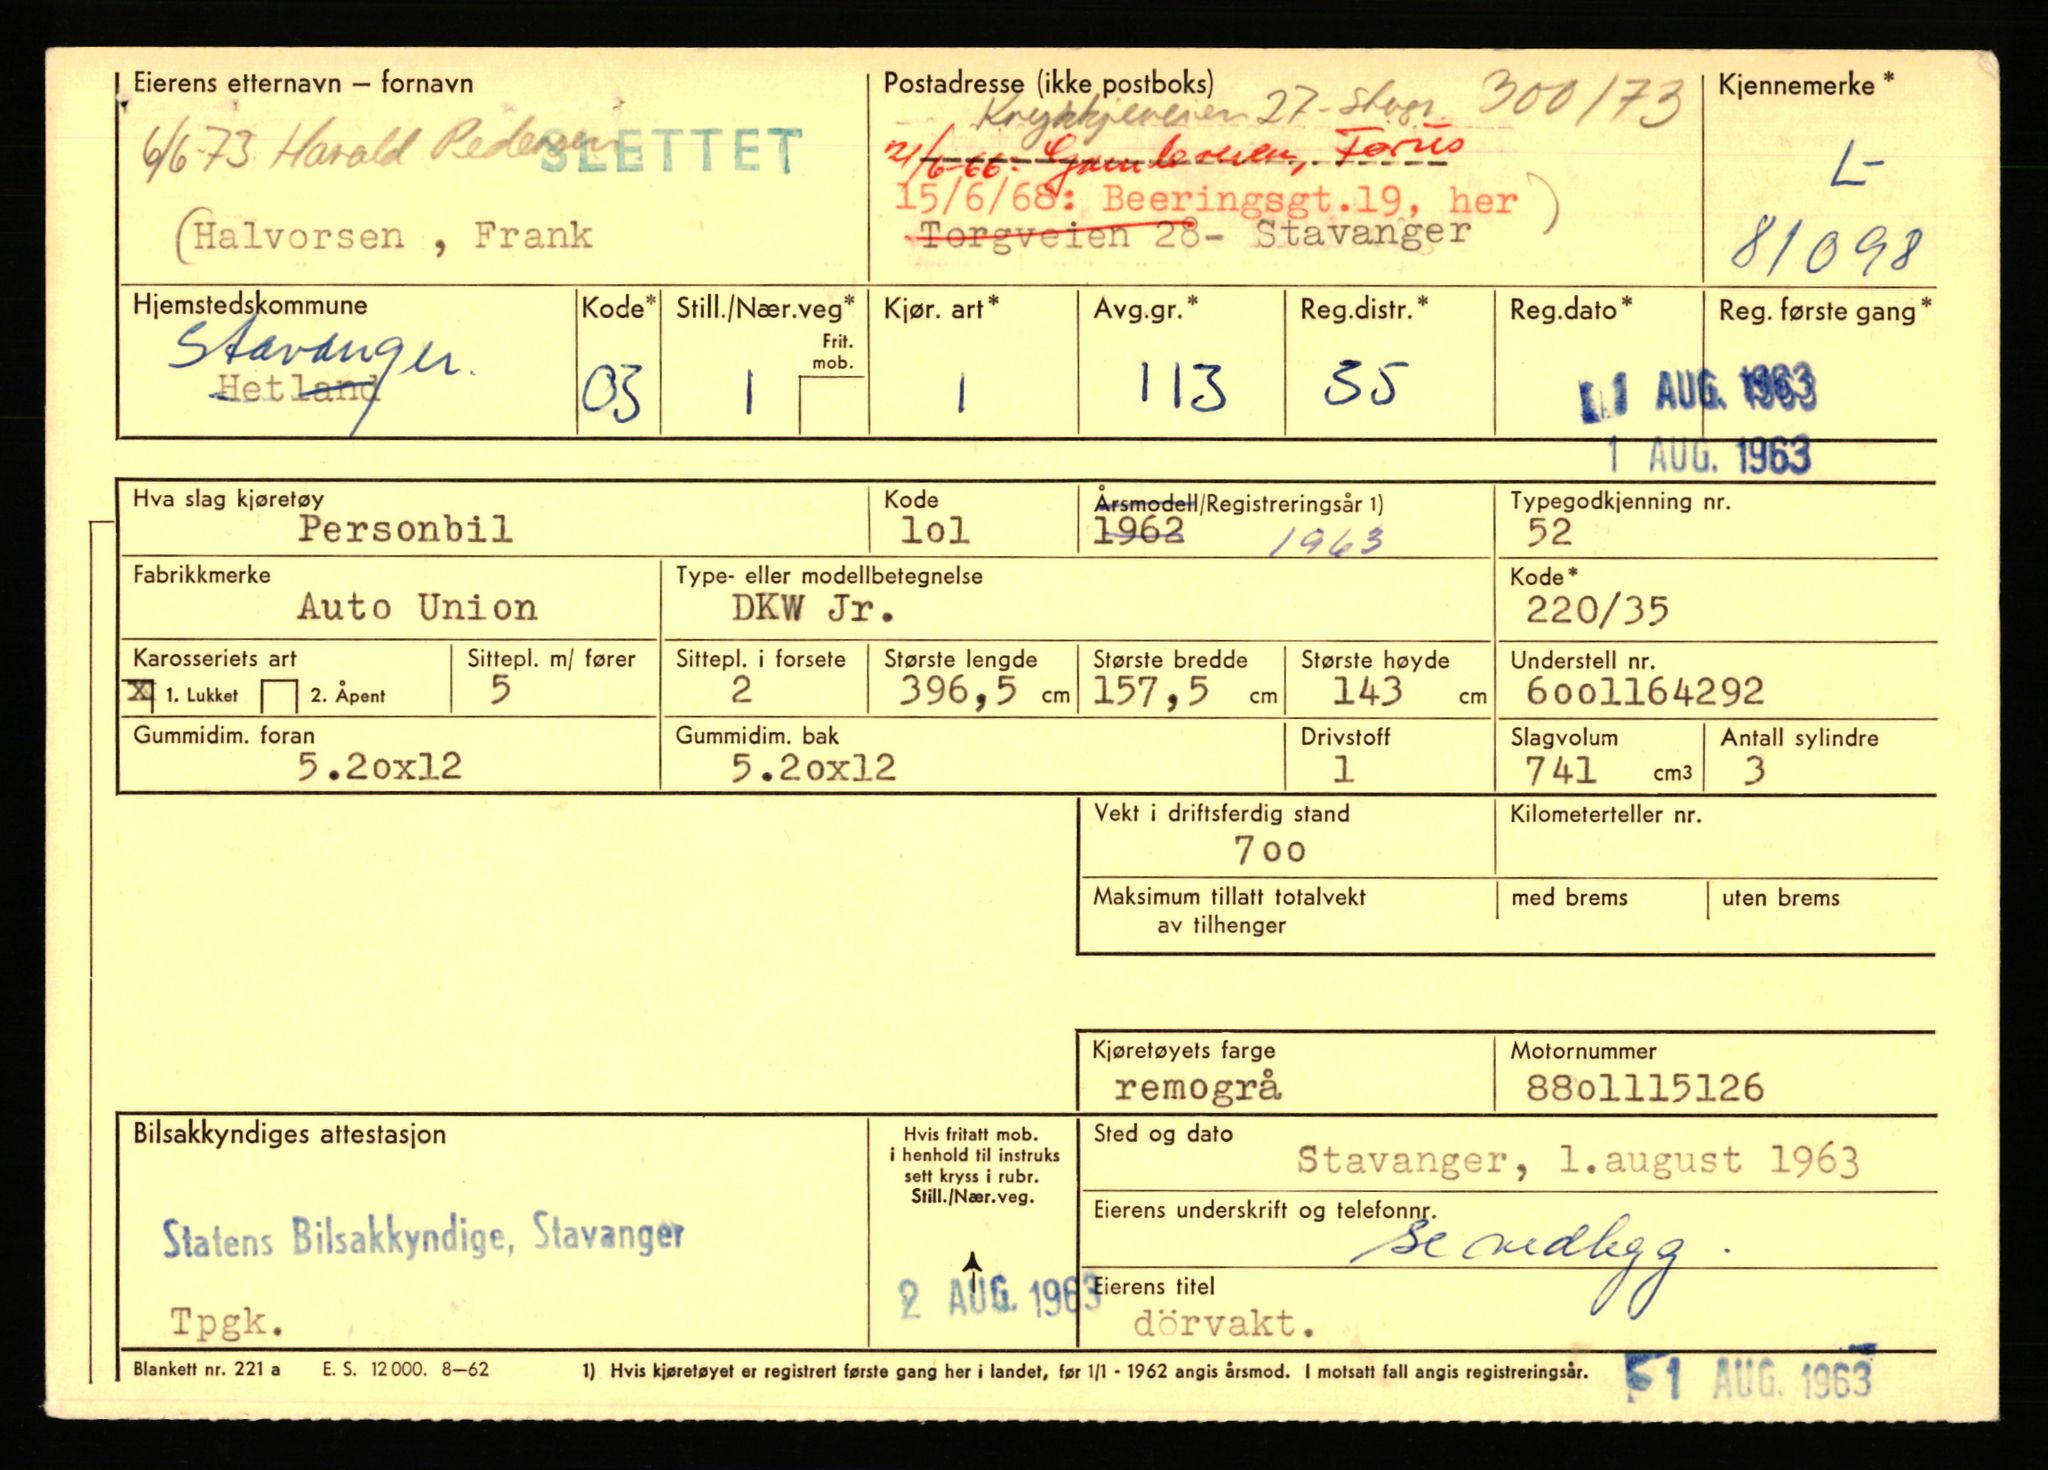 Eierens etternavn – fornavn
6/6-73 Harald Pedersen
SLETTET
(Halvorsen , Frank
Postadresse (ikke postboks)
Krykkjeveien 27 - Stvgr. 300/73
21/6-66: Gamleveien, Forus
15/6/68: Beeringsgt.19, her )
Torgveien 28- Stavanger
Kjennemerke*
L-
81098
Hjemstedskommune
Stavanger.
Hetland
Kode*
03
Still./Nær.veg*
Frit.
mob.
1
Kjør. art*
1
Avg.gr.*
113
Reg.distr.*
35
Reg.dato*
Reg. første gang*
1 AUG. 1963
1 AUG. 1963
Hva slag kjøretøy
Personbil
Kode
lol
Årsmodell/Registreringsår 1)
1962 1963
Typegodkjenning nr.
52
Fabrikkmerke
Auto Union
Type- eller modellbetegnelse
DKW Jr.
Kode*
220/35
Karosseriets art
x 1. Lukket 2. Åpent
Sittepl. m/ fører
5
Sittepl. i forsete
2
Største lengde
396,5 cm
Største bredde
157,5 cm
Største høyde
143 cm
Understell nr.
6001164292
Gummidim. foran
5.2ox12
Gummidim. bak
5.2ox12
Drivstoff
1
Slagvolum
741 cm3
Antall sylindre
3
Vekt i driftsferdig stand
7oo
Kilometerteller nr.
Maksimum tillatt totalvekt
av tilhenger
med brems
uten brems
Kjøretøyets farge
remogrå
Motornummer
88o1115126
Bilsakkyndiges attestasjon
Statens Bilsakkyndige, Stavanger
Tpgk.
Hvis fritatt mob.
i henhold til instruks
sett kryss i rubr.
Still./Nær.veg.
2 AUG. 1963
Sted og dato
Stavanger, 1.august 1963
Eierens underskrift og telefonnr.
se vedlegg.
Eierens titel
dörvakt.
Blankett nr. 221 a E. S. 12 000. 8–62
1) Hvis kjøretøyet er registrert første gang her i landet, før 1/1 - 1962 angis årsmod. I motsatt fall angis registreringsår.
1 AUG. 1963